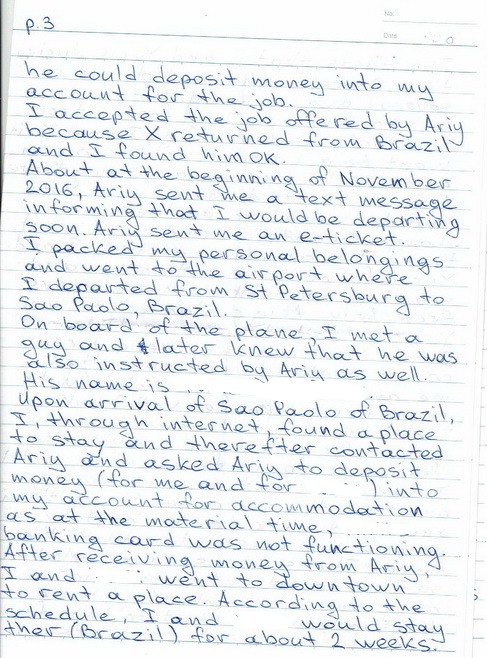 No.
Date
p.3
he could deposit money into my
account for the job.
I accepted the job offered by Ariy
because X returned from Brazil
and I found him OK.
About at the beginning of November
2016, Ariy sent me a text message
informing that I would be departing
soon. Ariy sent me an e-ticket.
I packed my personal belongings
and went to the airport where
I departed from St Petersburg to
Sao Paolo, Brazil.
On board of the plane, I met a
guy and later knew that he was
also instructed by Ariy as well.
His name is
Upon arrival of Sao Paolo of Brazil,
I, through internet, found a place
to stay and therefter contacted
Ariy and asked Ariy to deposit
money (for me and for ) into
my account for accommodation
as at the material time,
banking card was not functioning.
After receiving money from Ariy,
I and went to downtown
to rent a place. According to the
schedule, I and would stay
ther (Brazil) for about 2 weeks.